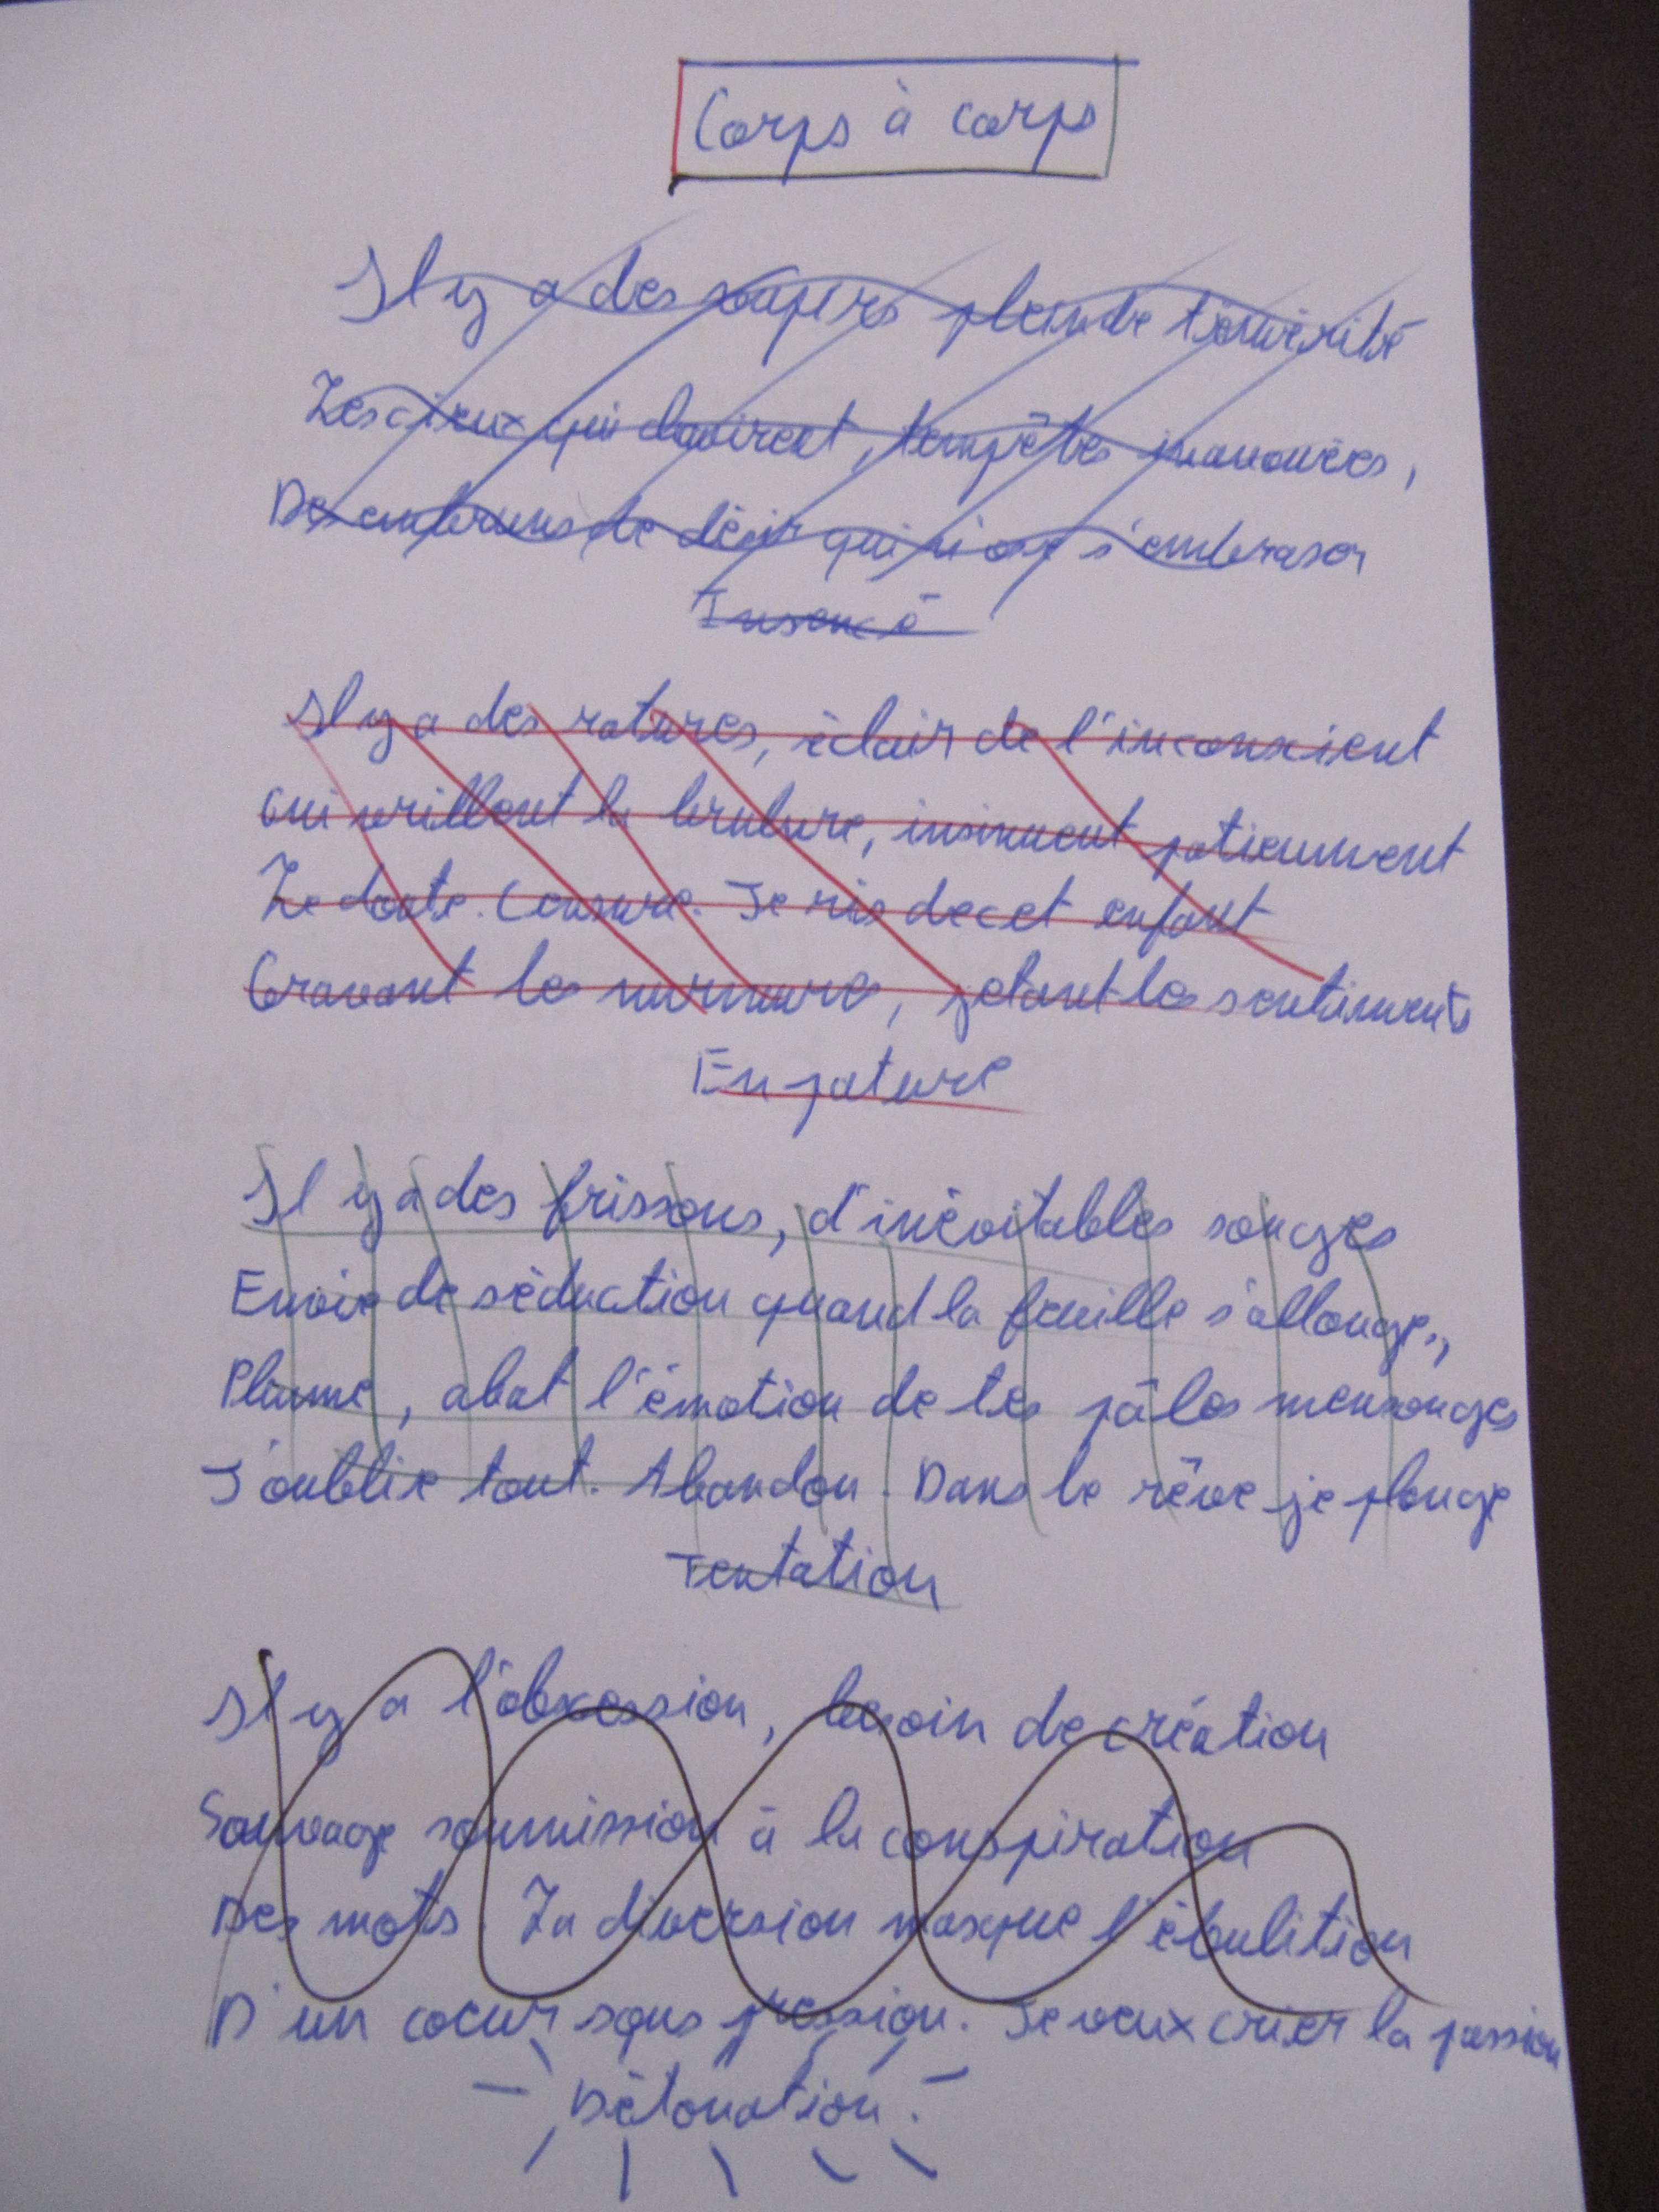 Corps à corps
Il y a des soupirs plein de témérité
Les cieux qui chavirent, tempêtes inavouées,
Des embruns de désir qui n'ose s'embraser
Insensé
Il y a des ratures, éclair de l'inconscient
Qui vrillent la brulure, insinuent patiemment
Le doute. Censure. Je ris de cet enfant
Gravant les murmures, jetant les sentiments
En pature
Il y a des frissons, d'inévitables songes
Envie de séduction quand la feuille s'allonge,
Plume, abat l'émotion de tes pâles mensonges
J'oublie tout. Abandon. Dans le rêve je plonge
Tentation
Il y a l'obsession, besoin de création
Sauvage soumission à la conspiration
Des mots. La diversion masque l'ébulition
D'un coeur sous pression. Je veux crier la passion
Détonation.